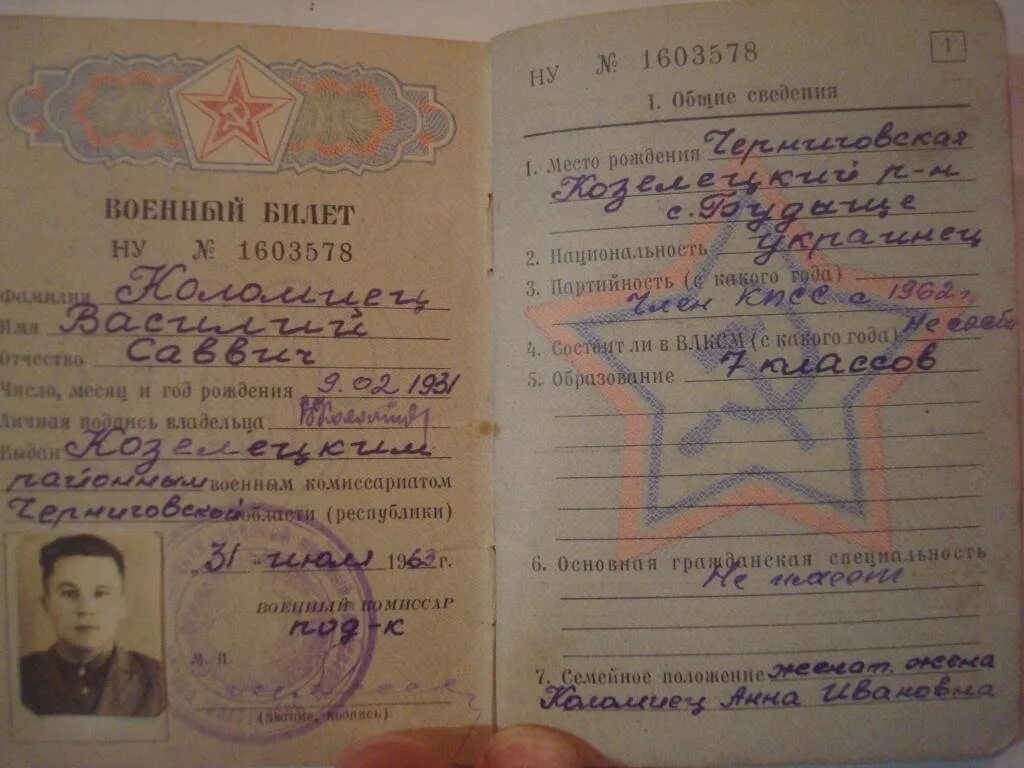 ВОЕННЫЙ БИЛЕТ
НУ № 1603578
Фамилия Коломиец
Имя Василий
Отчество Саввич
Число, месяц и год рождения 9.02 1931
Личная подпись владельца
Выдан Козелецким
районным военным комиссариатом
Черниговской области (республики)
31 " июля 1963 г.
ВОЕННЫЙ КОМИССАР
под-к
М. П.
(звание, подпись)
НУ № 1603578
1
I. Общие сведения
1. Место рождения Черниговская
Козелецкий р-н
с.
2. Национальность украинец
3. Партийность (с какого года)
Член КПСС с 1962 г.
4. Состоит ли в ВЛКСМ (с какого года) Не
5. Образование 7 классов
6. Основная гражданская специальность
Не имеет
7. Семейное положение женат. жена
Коломиец Анна Ивановна